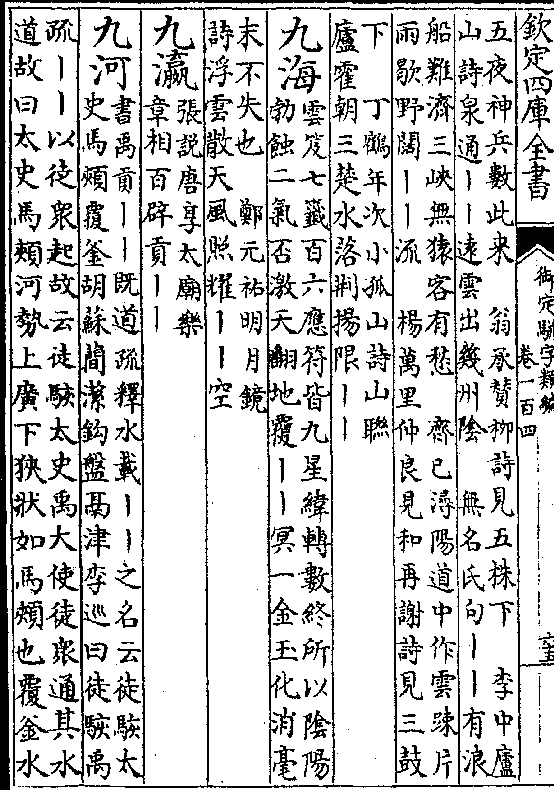 欽定四庫全書
御定駢字類編
卷一百四
五夜神兵數此來 翁承贊柳詩見五株下 李中廬
山詩泉通丨丨遠雲出幾州陰 無名氏句丨丨有浪
船難濟三峽無猿客有愁 齊已潯陽道中作雲疎片
雨歇野闊丨丨流 楊萬里仲良見和再謝詩見三鼓
下 丁鶴年次小孤山詩山聯
廬霍朝三楚水落荆揚限丨丨
九海 雲笈七籤百六應符皆九星緯轉數終所以陰陽
勃蝕二氣否激天翻地覆丨丨冥一金玉化消毫
末不失也 鄭元祐明月鏡
詩浮雲散天風照耀丨丨空
九瀛 張説唐享太廟樂
章相百辟貢丨丨
九河 書禹貢丨丨既道疏釋水載丨丨之名云徒駭太
史馬頰覆釜胡蘇簡潔鈎盤鬲津李巡曰徒駭禹
疏丨丨以徒衆起故云徒駭太史禹大使徒衆通其水
道故曰太史馬頰河勢上廣下狹狀如馬頰也覆釜水